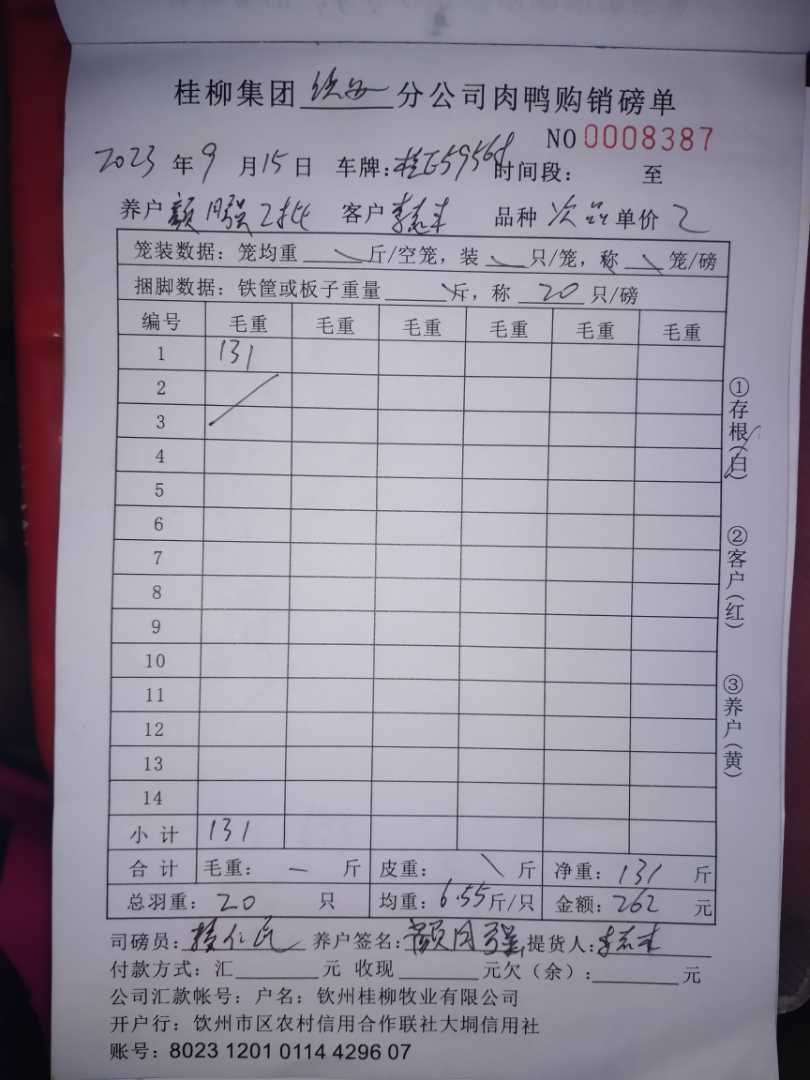 桂柳集团 分公司肉鸭购销磅单
NO 0008387
2023 年 9 月 15 日 车牌: 时间段: 至
养户 颜月强 2批 客户 李志 品种 次品 单价 2
笼装数据: 笼均重 斤/空笼, 装 只/笼, 称 笼/磅
捆脚数据: 铁筐或板子重量 斤, 称 20 只/磅
编号 毛重 毛重 毛重 毛重 毛重 毛重
1 131
2
3
4
5
6
7
8
9
10
11
12
13
14
小计 131
合计 毛重: — 斤 皮重: \ 斤 净重: 131 斤
总羽重: 20 只 均重: 6.55 斤/只 金额: 262 元
司磅员: 养户签名: 颜月强 提货人: 李志
付款方式: 汇 元 收现 元欠(余): 元
公司汇款帐号: 户名: 钦州桂柳牧业有限公司
开户行: 钦州市区农村信用合作联社大垌信用社
账号: 8023 1201 0114 4296 07
①存根(白)
②客户(红)
③养户(黄)